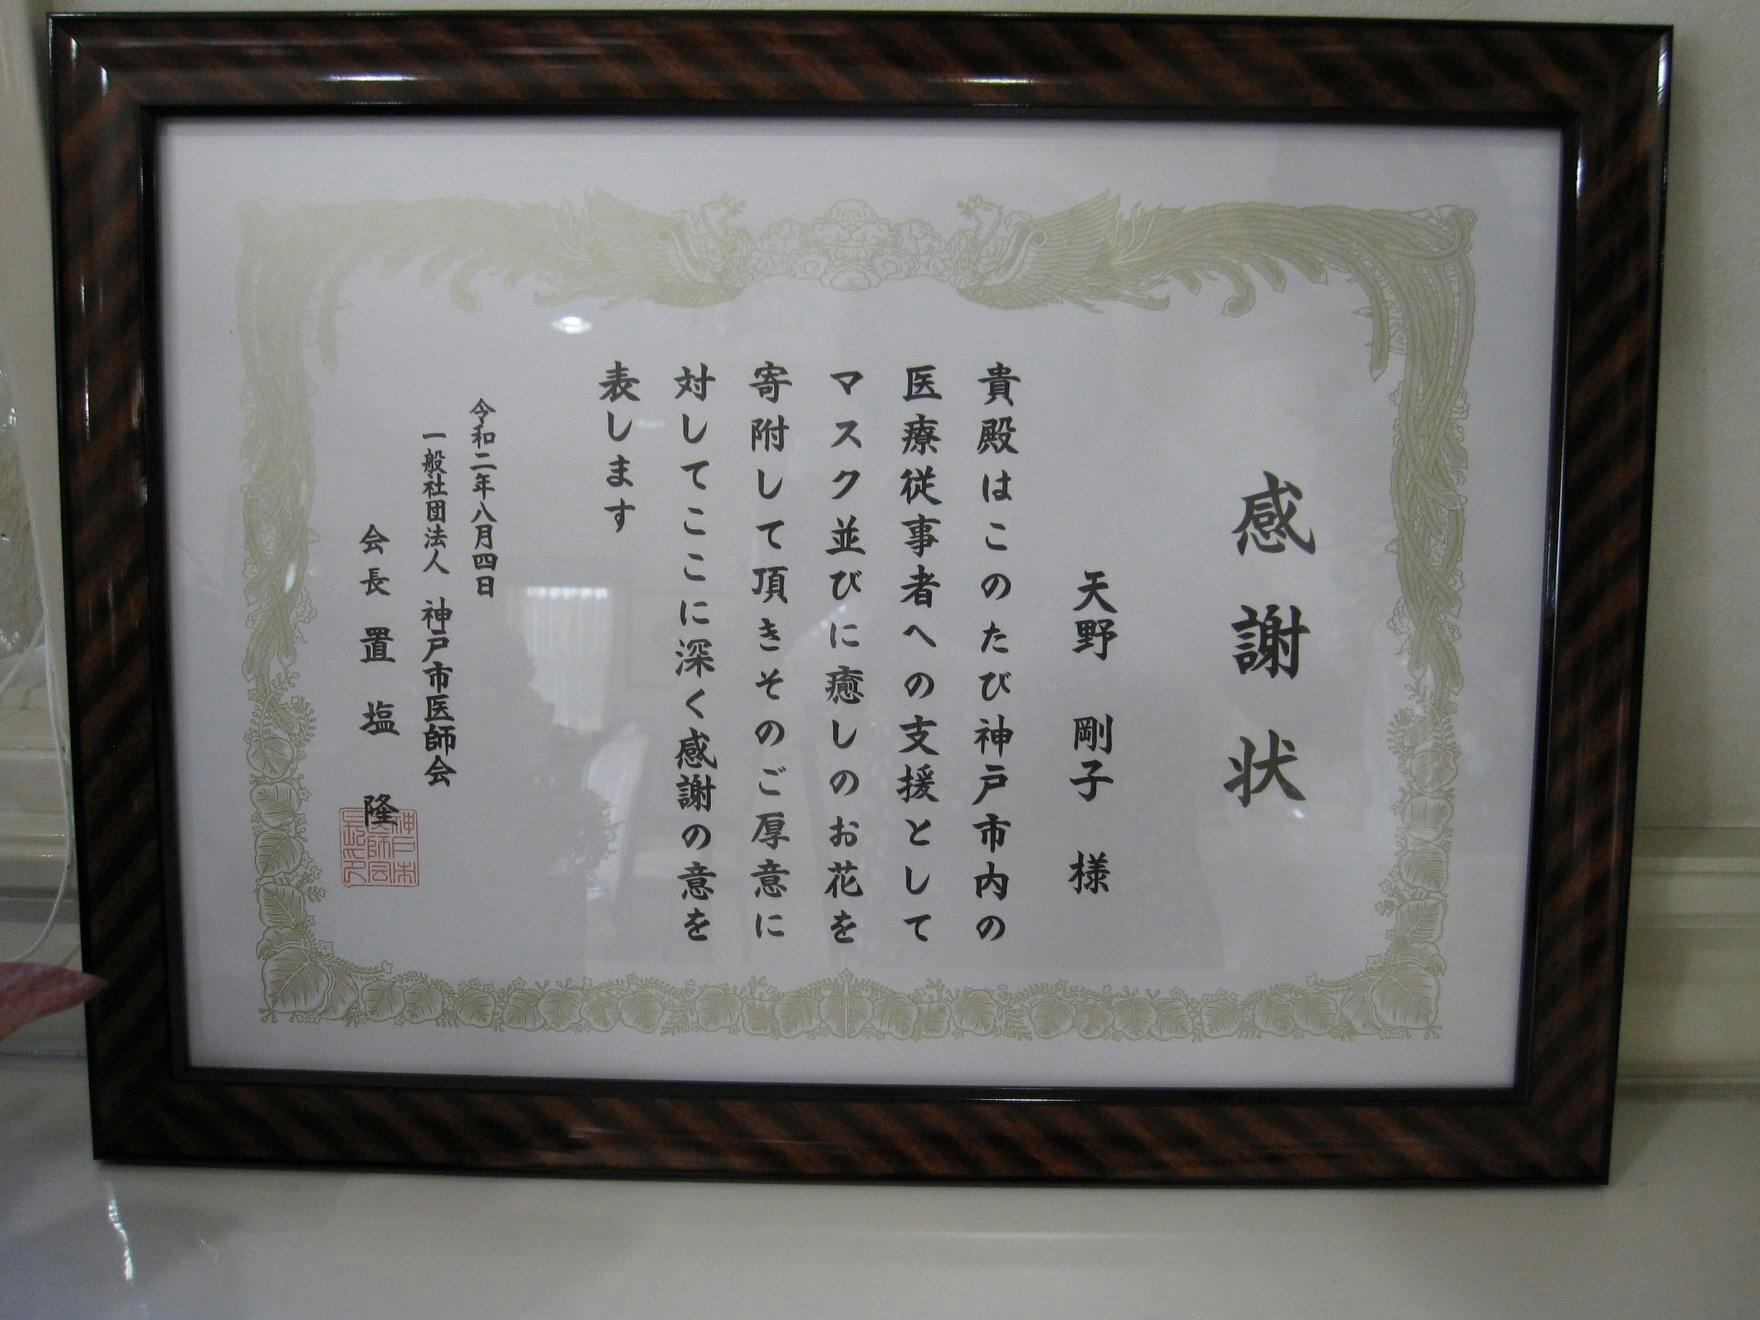 感謝状
天野 剛子 様
貴殿はこのたび神戸市内の
医療従事者への支援として
マスク並びに癒しのお花を
寄附して頂きそのご厚意に
対してここに深く感謝の意を
表します
令和二年八月四日
一般社団法人 神戸市医師会
会長 置塩 隆
神戸市
医師会
長之印